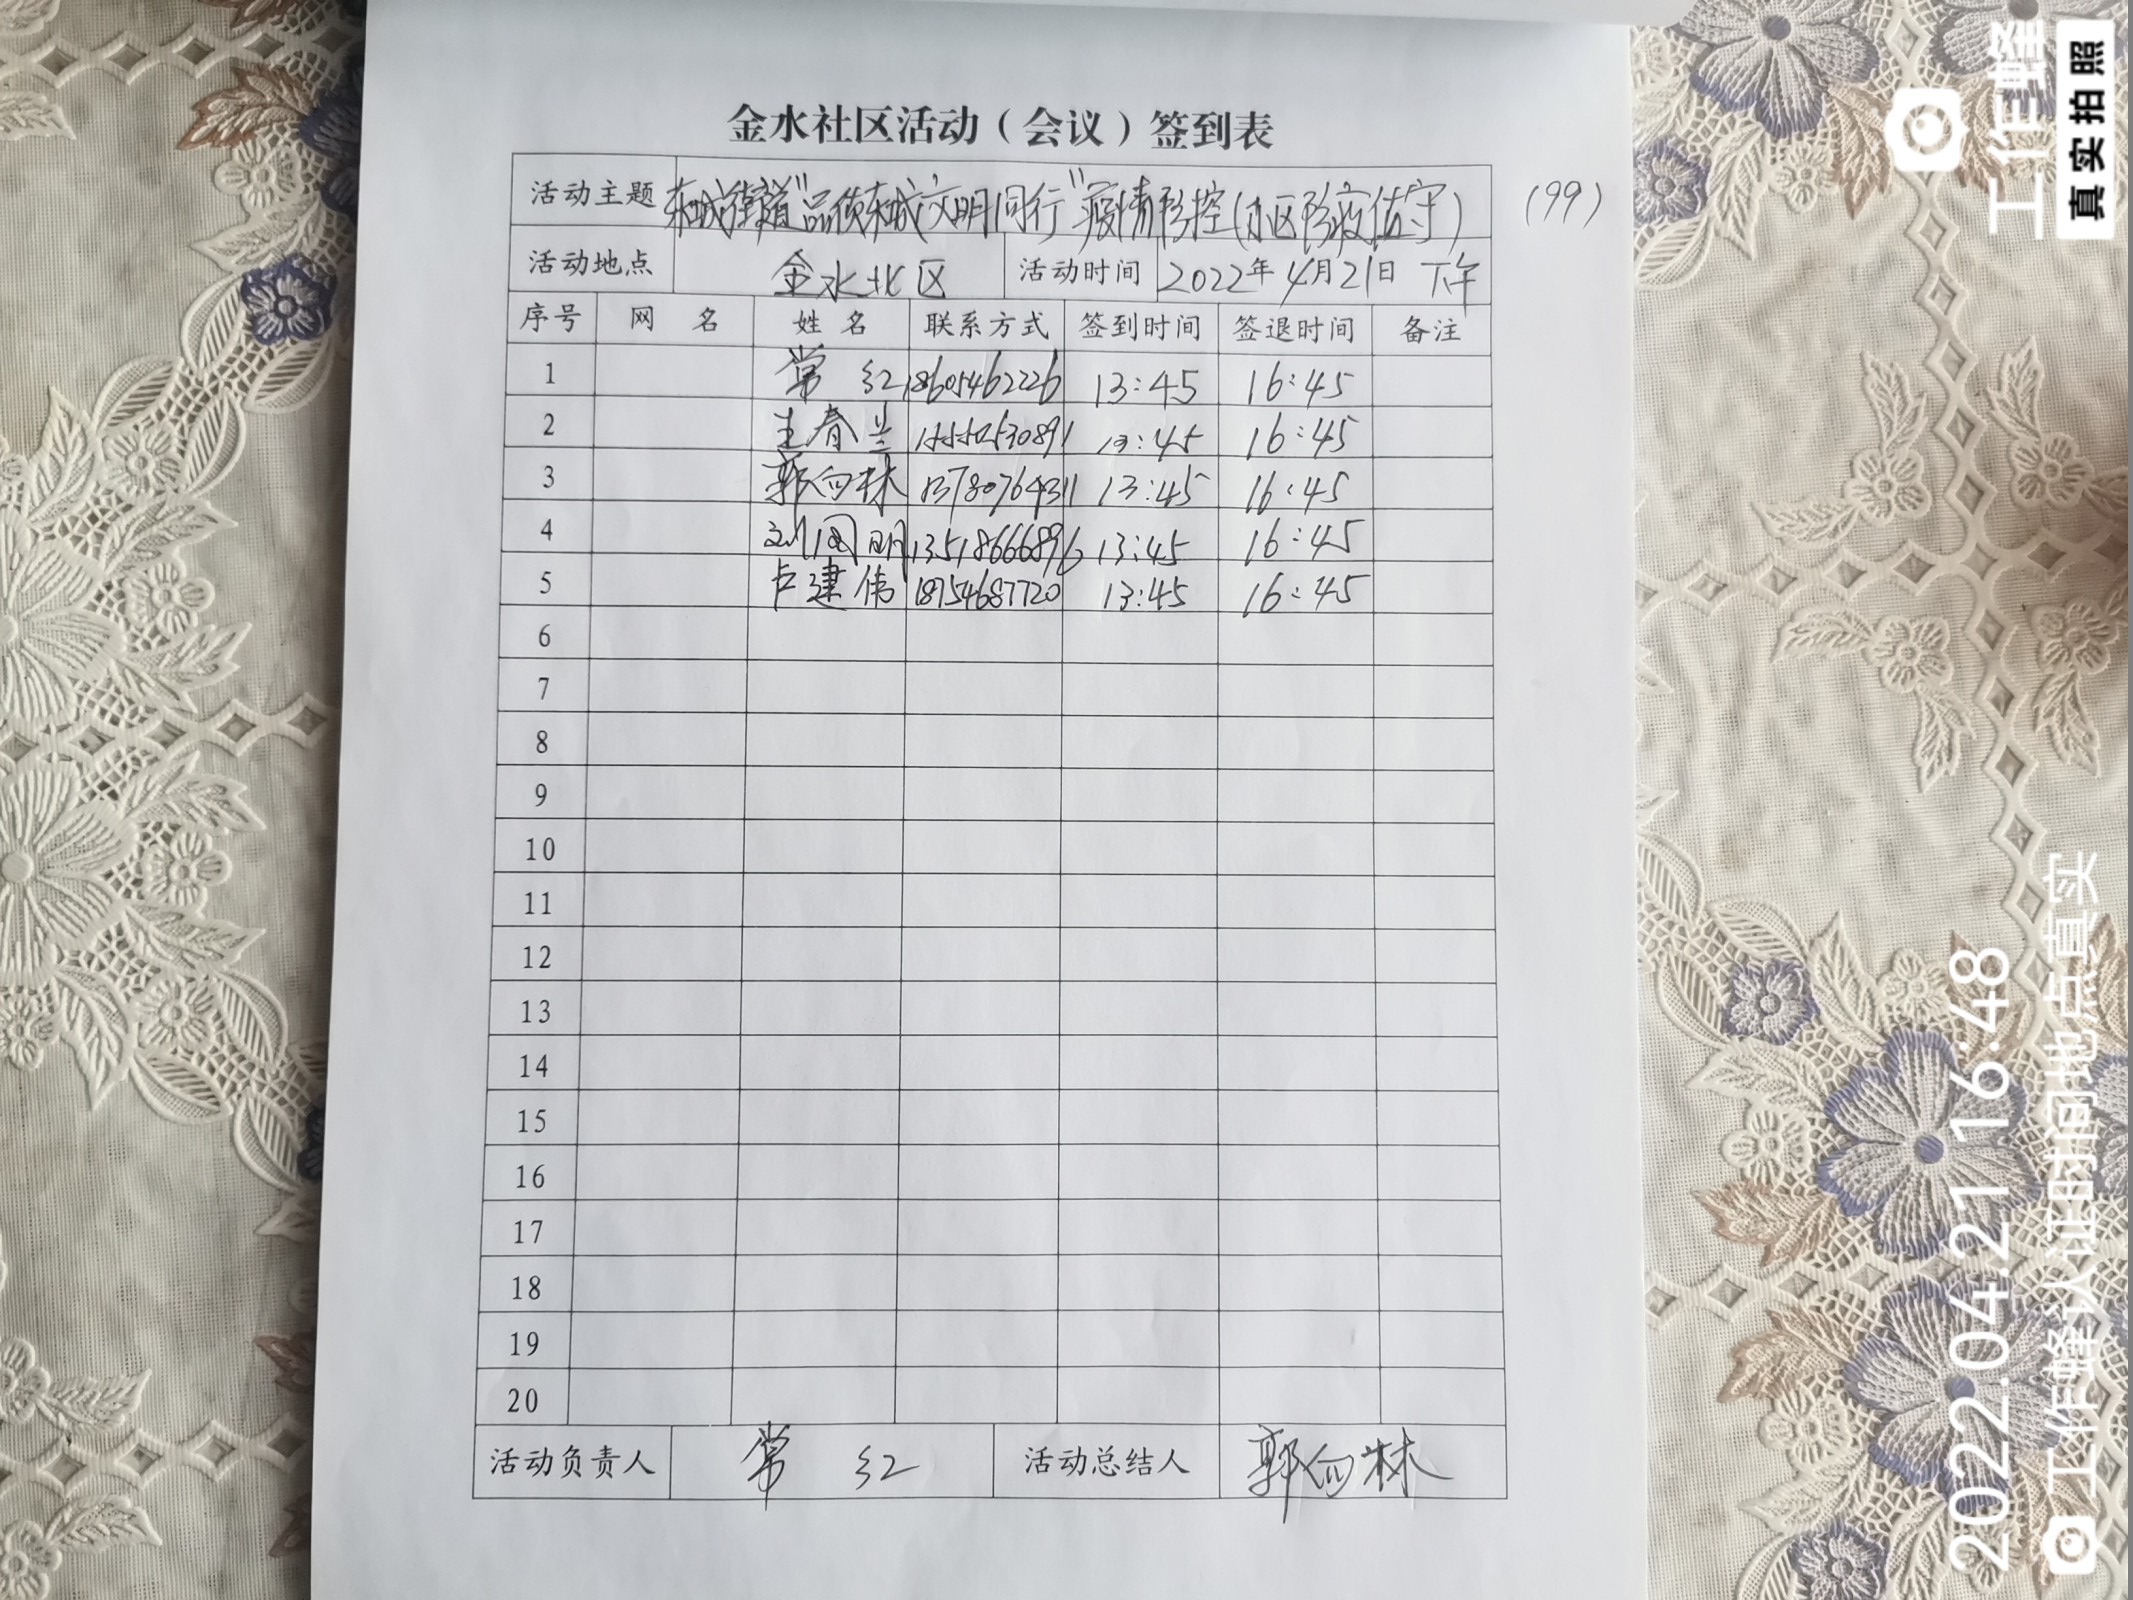 金水社区活动（会议）签到表
活动主题 东城街道"品质东城文明同行"疫情防控(小区防疫值守) (99)
活动地点 金水北区 活动时间 2022年4月21日 下午
序号 网 名 姓 名 联系方式 签到时间 签退时间 备注
1 常 红 18605462226 13:45 16:45
2 王春兰 13:45 16:45
3 郭向林 13780764311 13:45 16:45
4 刘国明 13518666896 13:45 16:45
5 卢建伟 18754687720 13:45 16:45
6
7
8
9
10
11
12
13
14
15
16
17
18
19
20
活动负责人 常 红 活动总结人 郭向林
工作蜂
真实拍照
2022.04.21 16:48
工作蜂认证时间地点真实